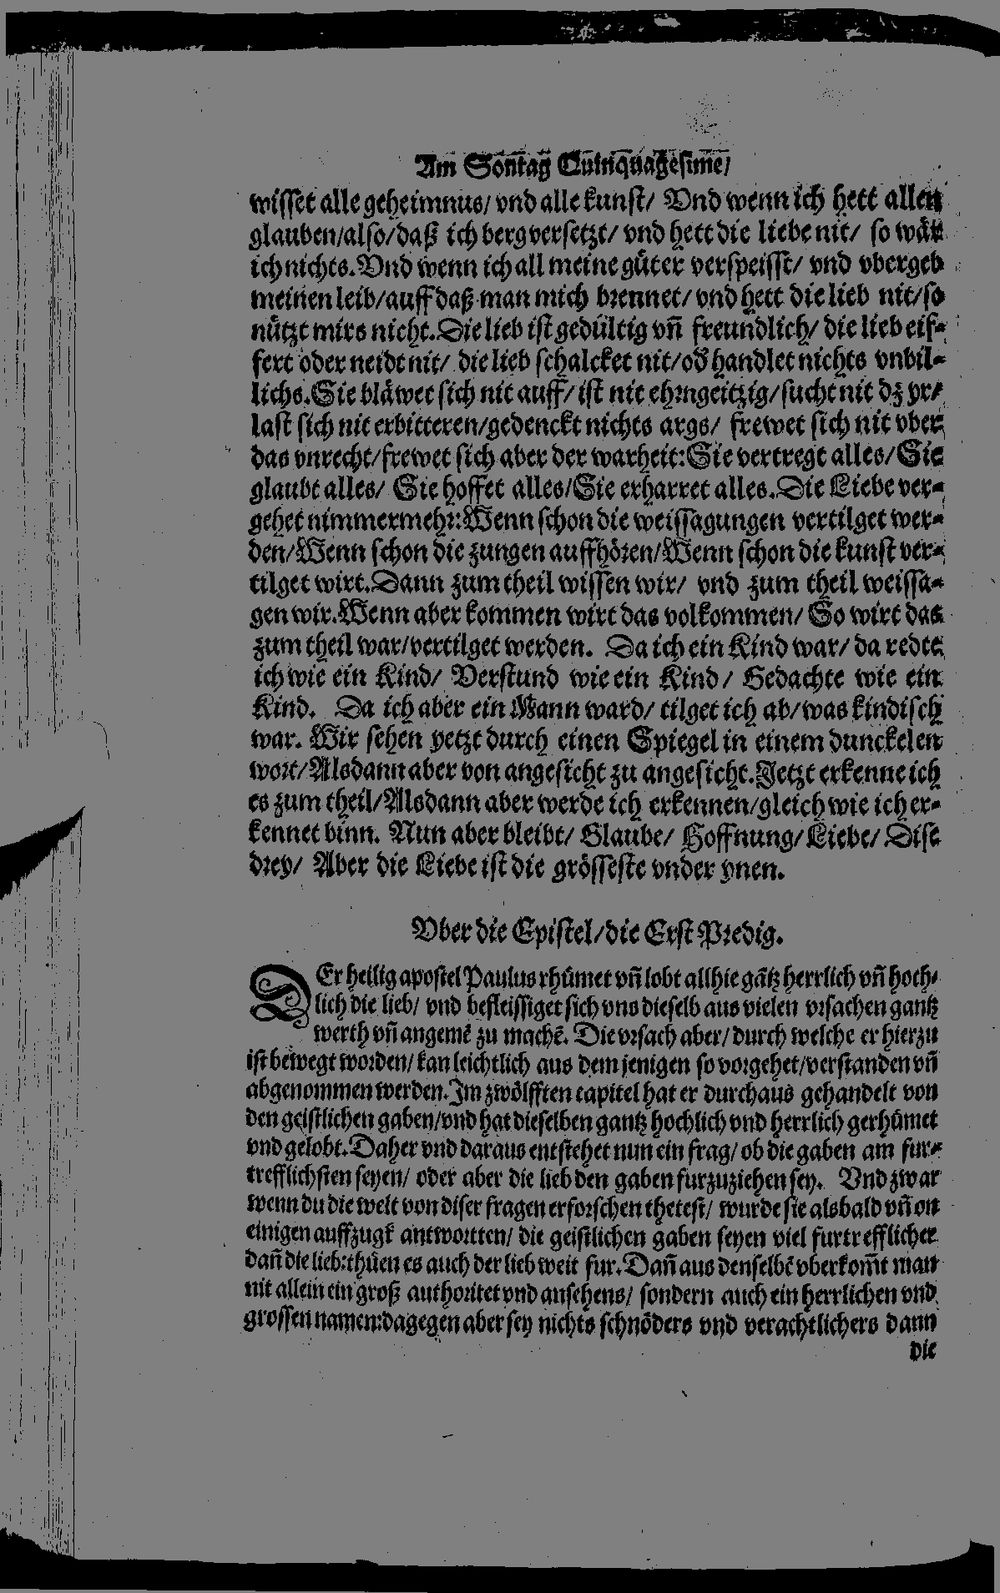 Am Sontag Quinquagesime/
wisset alle geheimnus/ vnd alle kunst/ Vnd wenn ich hett allen
glauben/also/daß ich berg versetzt/ vnd hett die liebe nit/ so wär
ich nichts. Vnd wenn ich all meine güter verspeisst/ vnd vbergeb
meinen leib/auff daß man mich brennet/ vnd hett die lieb nit/so
nützt mirs nicht. Die lieb ist gedültig vñ freundlich/ die lieb eif-
fert oder neidt nit/ die lieb schalcket nit/oď handlet nichts vnbil-
lichs. Sie bläwet sich nit auff/ ist nit ehrngeitzig/sucht nit dz yr/
last sich nit erbitteren/gedenckt nichts args/ frewet sich nit vber
das vnrecht/frewet sich aber der warheit: Sie vertregt alles/ Sie
glaubt alles/ Sie hoffet alles/Sie erharret alles. Die Liebe ver-
gehet nimmermehr: Wenn schon die weissagungen vertilget wer-
den/Wenn schon die zungen auffhören/Wenn schon die kunst ver-
tilget wirt. Dann zum theil wissen wir/ vnd zum theil weissa-
gen wir. Wenn aber kommen wirt das volkommen/ So wirt das
zum theil war/vertilget werden. Da ich ein Kind war/ da redte
ich wie ein Kind/ Verstund wie ein Kind/ Gedachte wie ein
Kind. Da ich aber ein Mann ward/ tilget ich ab/was kindisch
war. Wir sehen yetzt durch einen Spiegel in einem dunckelen
wort/Alsdann aber von angesicht zu angesicht. Jetzt erkenne ich
es zum theil/Alsdann aber werde ich erkennen/gleich wie ich er-
kennet binn. Nun aber bleibt/ Glaube/ Hoffnung/ Liebe/ Dise
drey/ Aber die Liebe ist die grösseste vnder ynen.
Vber die Epistel/die Erst Predig.
DEr heilig apostel Paulus rhümet vñ lobt allhie gãtz herrlich vñ hoch-
lich die lieb/ vnd befleissiget sich vns dieselb aus vielen vrsachen gantz
werth vñ angemẽ zu machẽ. Die vrsach aber/ durch welche er hierzu
ist bewegt worden/ kan leichtlich aus dem jenigen so vorgehet/verstanden vñ
abgenommen werden. Im zwölfften capitel hat er durchaus gehandelt von
den geistlichen gaben/vnd hat dieselben gantz hochlich vnd herrlich gerhümet
vnd gelobt. Daher vnd daraus entstehet nun ein frag/ ob die gaben am fur-
trefflichsten seyen/ oder aber die lieb den gaben furzuziehen sey. Vnd zwar
wenn du die welt von diser fragen erforschen thetest/ wurde sie alsbald vñ on
einigen auffzugk antwortten/ die geistlichen gaben seyen viel furtrefflicher
dañ die lieb: thüen es auch der lieb weit fur. Dañ aus denselbẽ vberkom̃t man
nit allein ein groß authoritet vnd ansehens/ sondern auch ein herrlichen vnd
grossen namen: dagegen aber sey nichts schnöders vnd verachtlichers dann
die